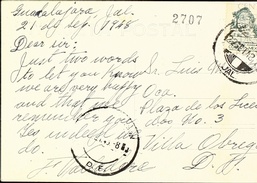 Guadalajara Jal.
21 de sep. 1948
2707
Dear sir:
Just two words
to let you know
we are very happy
and that we
remember you
Yes indeed we
do.
Sr. Luis
Plaza de los
No. 3
Villa Obregon
D. F.